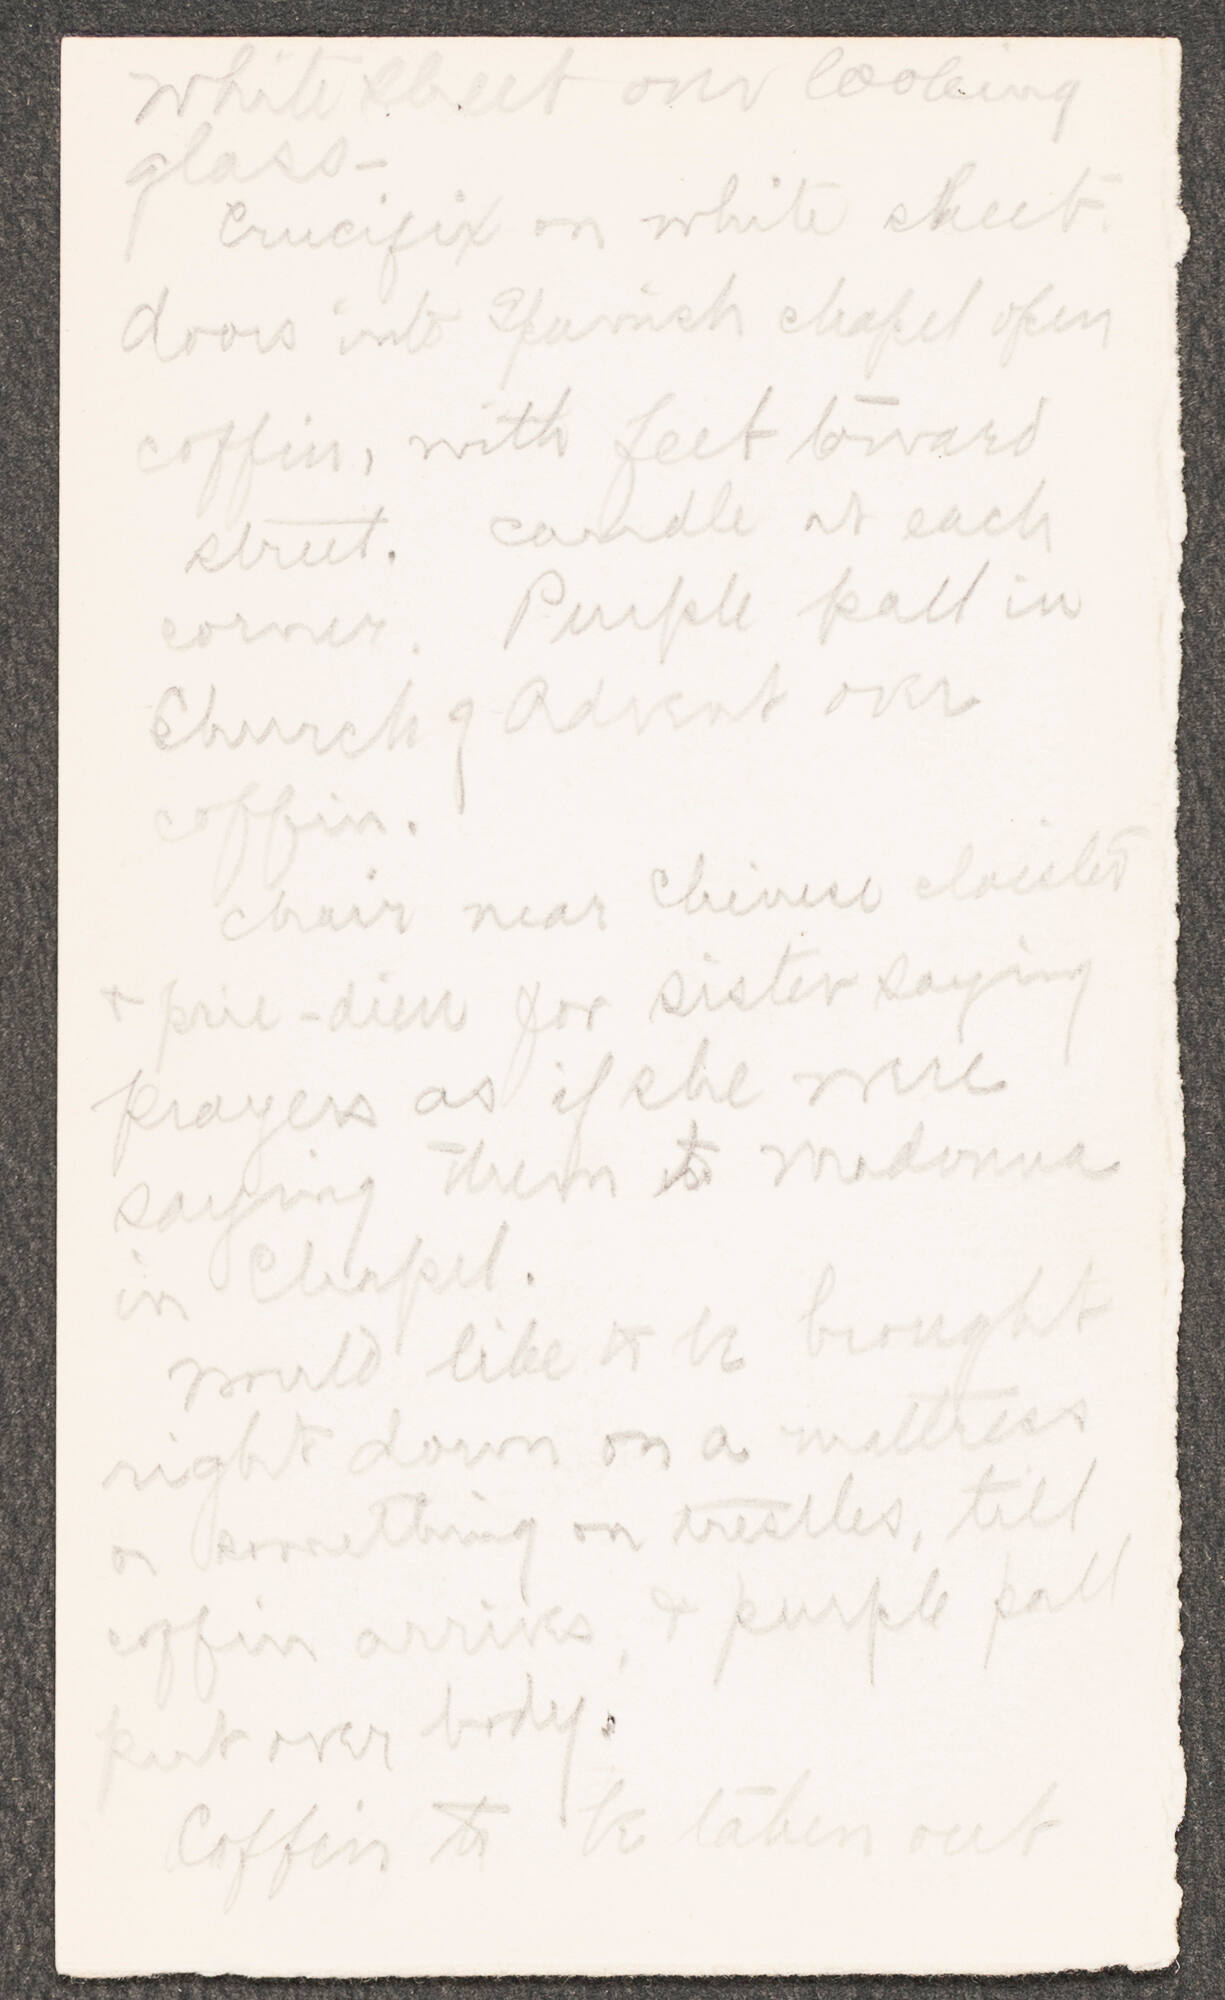 White sheet over looking
glass-
Crucifix on white sheet.
doors into Spanish chapel open
coffin, with feet toward
street. candle at each
corner. Purple pall in
Church of Advent over
coffin.
chair near Chinese cloister
& prie-dieu for sister saying
prayers as if she were
saying them to Madonna
in Chapel.
Would like to be brought
right down on a mattress
or something on trestles, till
coffin arrives, & purple pall
put over body.
Coffin to be taken out